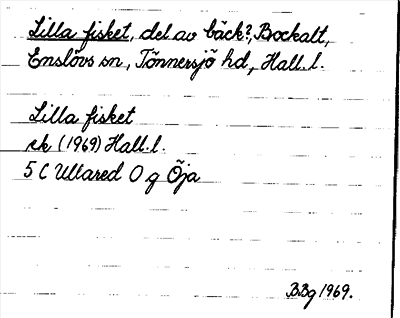 Lilla fisket, del av bäck?, Brockalt,
Enslövs sn, Tönnersjö hd, Hall. l.
Lilla fisket
rk (1969) Hall. l.
5 C Ullared O g Öja
BBg 1969.